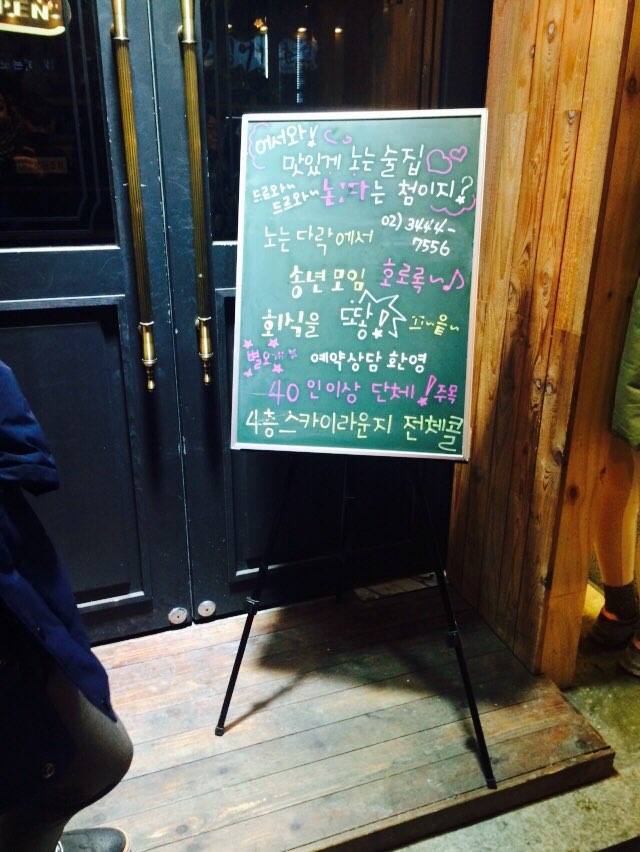 OPEN
어서와!
맛있게 노는 술집
드루와~ 드루와~ 놀다는 첨이지?
02) 3444-7556
노는다락에서
송년모임 호로록~♪
회식을 또땅!
예약상담 환영
40인이상 단체! 주목
4층스카이라운지 전체콜